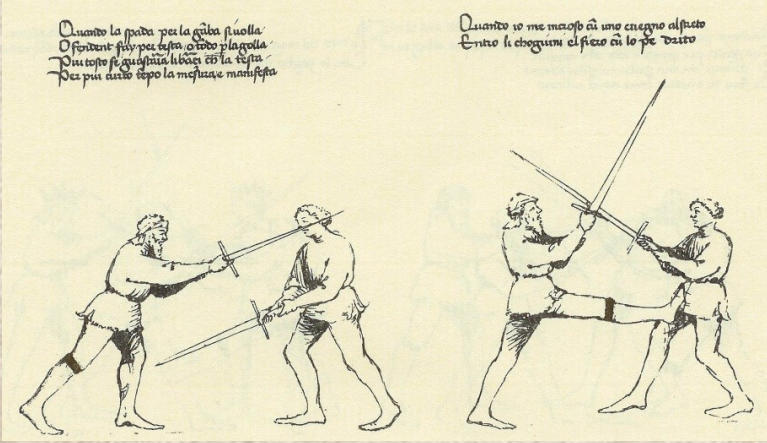 Quando la spada per la gāba si uolla
O fendent fazo per testa, o todo p la golla
Piu tosto se guastarāa li braci chē la testa
Per piu curto tēpo la mesura, e manifesta
Quando io me incroso cū uno e uegno al streto
Entro li chogiuni el fiero cū lo pe drito